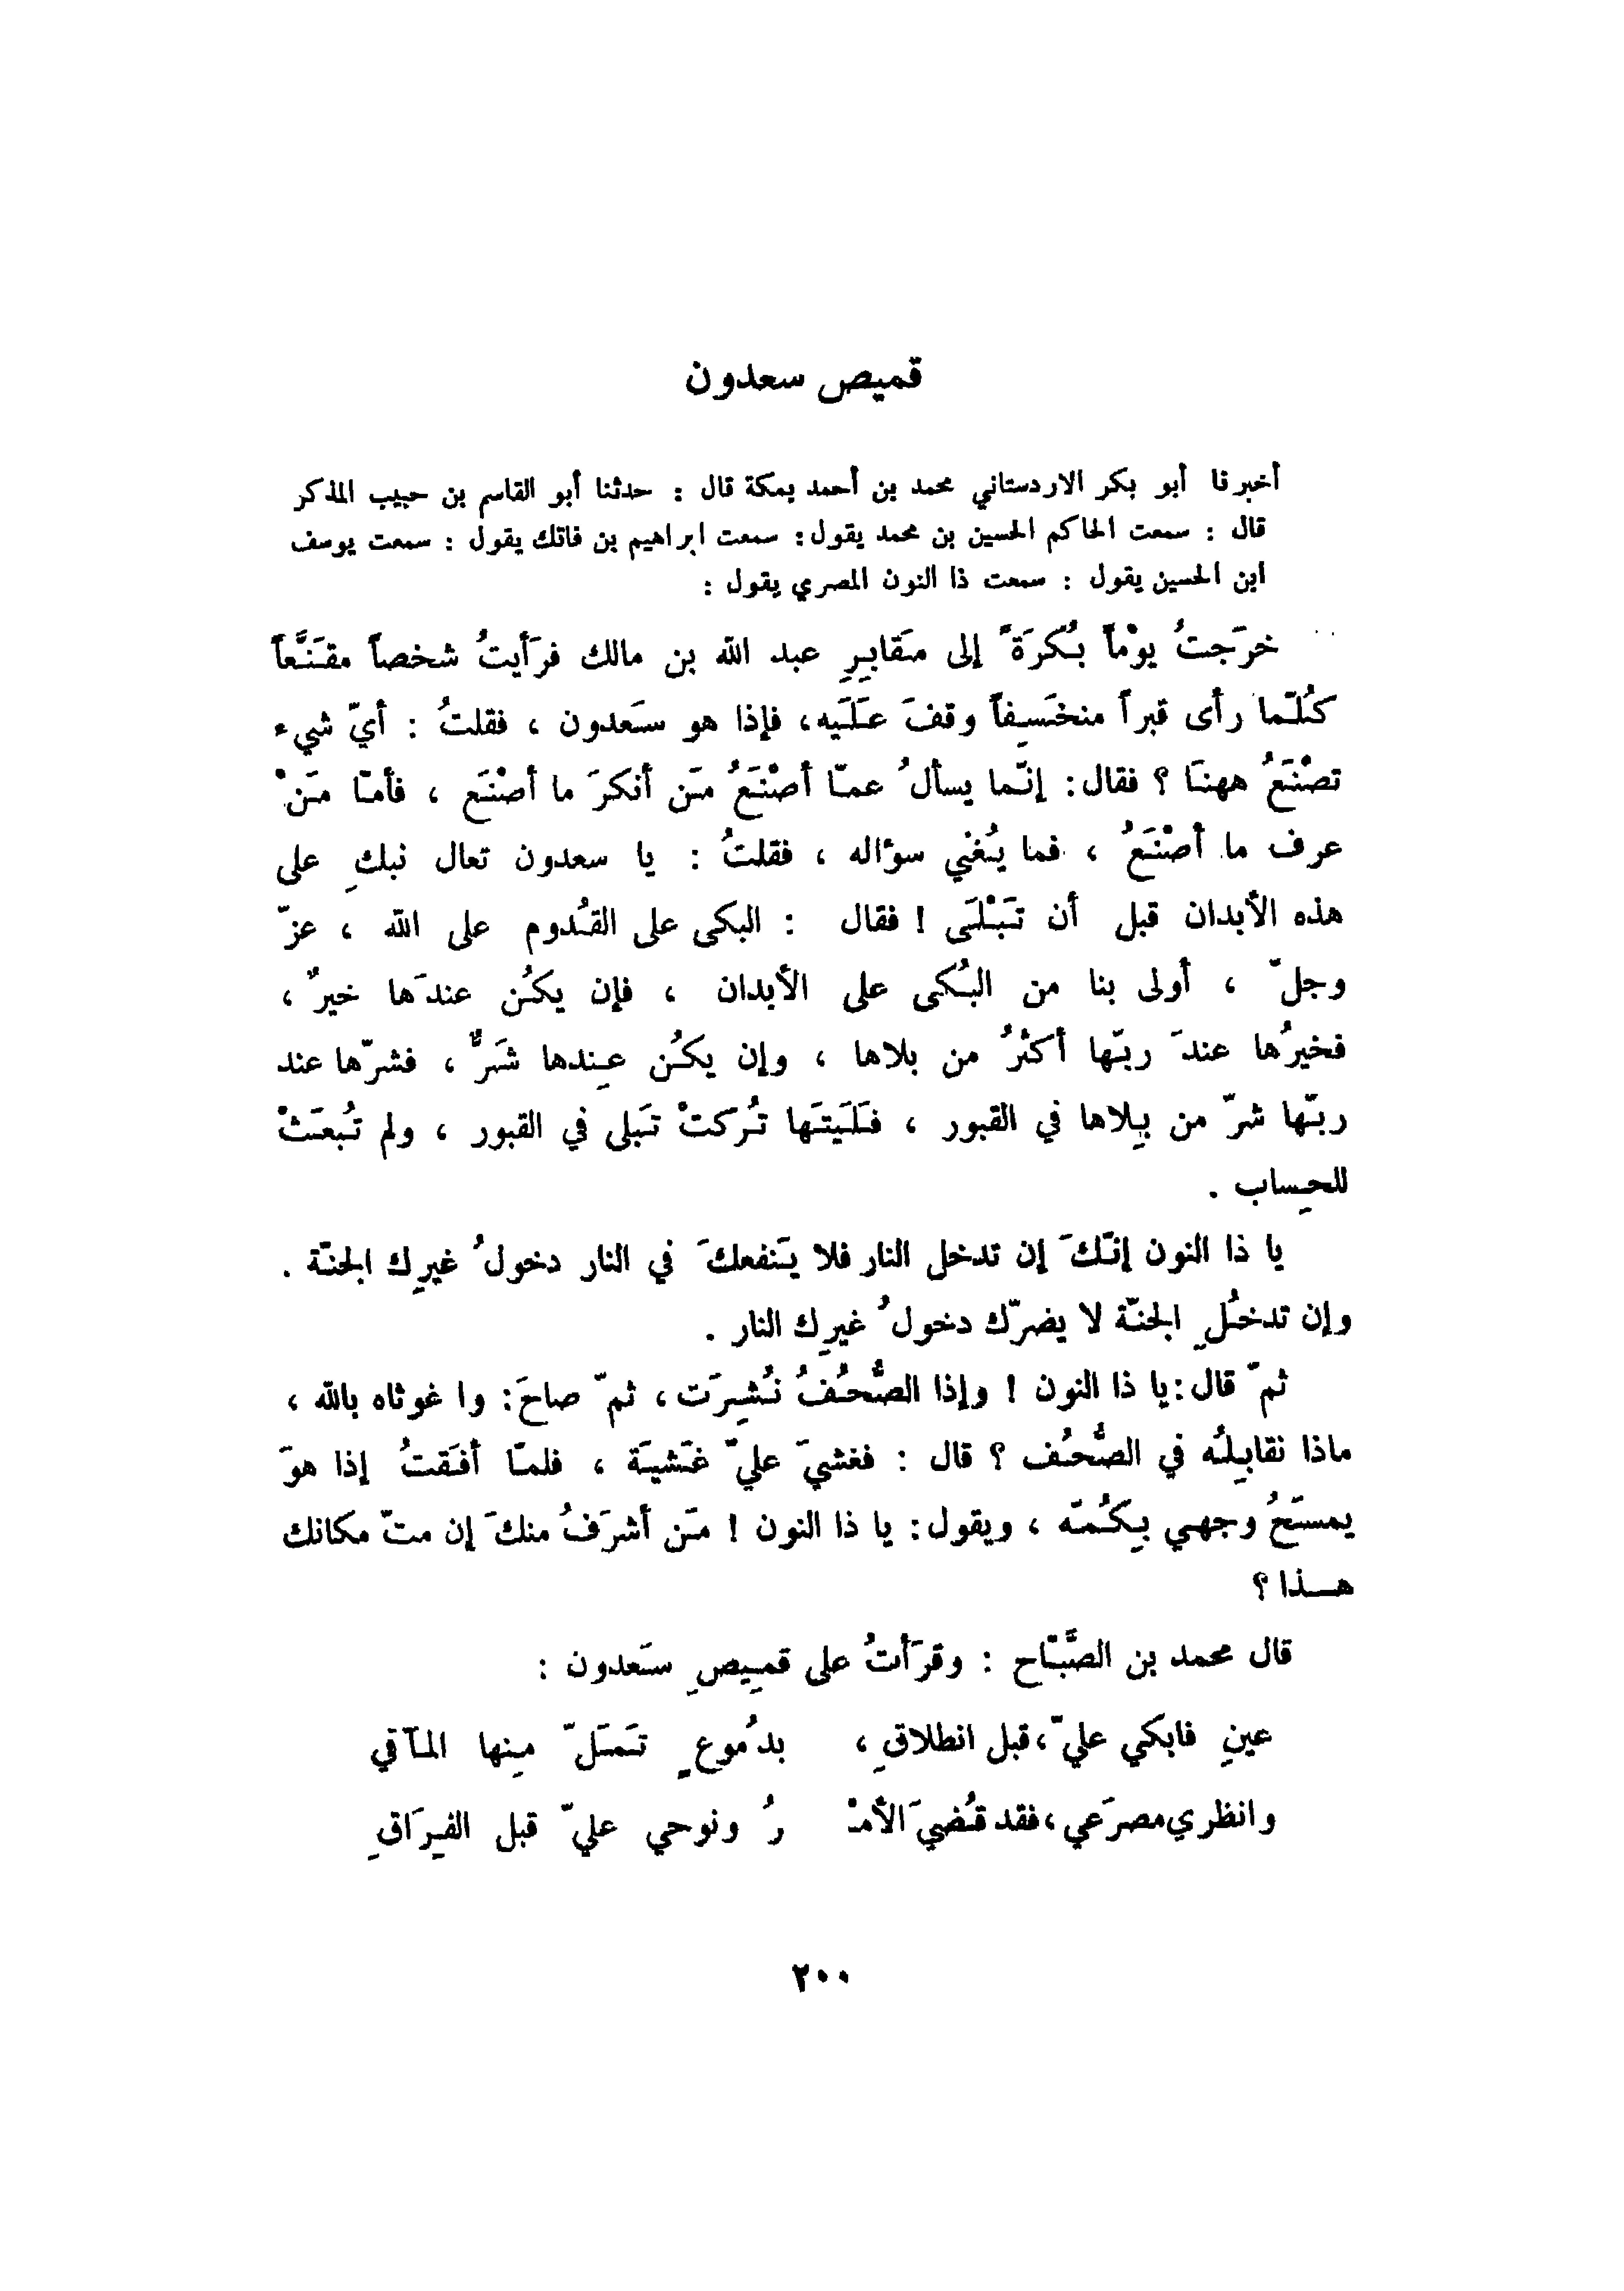 قميص سعدون
أخبرنا أبو بكر الاردستاني محمد بن أحمد بمكة قال : حدثنا أبو القاسم بن حبيب المذكر
قال : سمعت الحاكم الحسين بن محمد يقول : سمعت ابراهيم بن فاتك يقول : سمعت يوسف
ابن الحسين يقول : سمعت ذا النون المصري يقول :
خرَجتُ يوْماً بُكرَةً إلى مَقابِرِ عبد الله بن مالك فرَأيتُ شخصاً مقَنَّعاً
كُلّما رأى قبراً منخَسِفاً وقفَ عَلَيه ، فإذا هو سَعدون ، فقلتُ : أيّ شيء
تصْنَعُ ههنَا ؟ فقال : إنّما يسألُ عمّا أصْنَعُ مَن أنكرَ ما أصْنَع ، فأمّا مَنْ
عرف ما أصْنَعُ ، فما يُغني سؤاله ، فقلتُ : يا سعدون تعال نبكِ على
هذه الأبدان قبل أن تَبْلَى ! فقال : البكى على القُدوم على الله ، عزّ
وجلّ ، أولى بنا من البُكى على الأبدان ، فإن يكُن عندَها خيرٌ ،
فخيرُها عندَ ربّها أكثرُ من بلاها ، وإن يكُن عِندها شَرٌّ ، فشرّها عند
ربّها شرّ من بِلاها في القبور ، فَلَيتَها تُركتْ تَبلى في القبور ، ولم تُبعَثْ
للحِساب .
يا ذا النون إنّكَ إن تدخل النار فلا يَنفعكَ في النار دخولُ غيرِك الجنّة .
وإن تدخُلِ الجنّة لا يضرّك دخولُ غيرِك النار .
ثمّ قال : يا ذا النون ! وإذا الصُّحُفُ نُشِرَت ، ثمّ صاحَ : وا غوثاه بالله ،
ماذا نقابِلُه في الصُّحُف ؟ قال : فغشيَ عليّ غَشيَة ، فلمّا أفَقتُ إذا هوَ
يمسَحُ وجهي بِكُمّه ، ويقول : يا ذا النون ! مَن أشرَفُ منكَ إن متّ مكانك
هــذا ؟
قال محمد بن الصَّبّاح : وقرَأتُ على قمِيصِ سَعدون :
عينِ فابكي عليّ ، قبل انطلاقِ ، بدُموعٍ تَمَلّ مِنها المآقي
وانظري مصرَعي ، فقد قُضيَ الأمْـ ـرُ ونوحي عليّ قبل الفِرَاقِ
٢٠٠